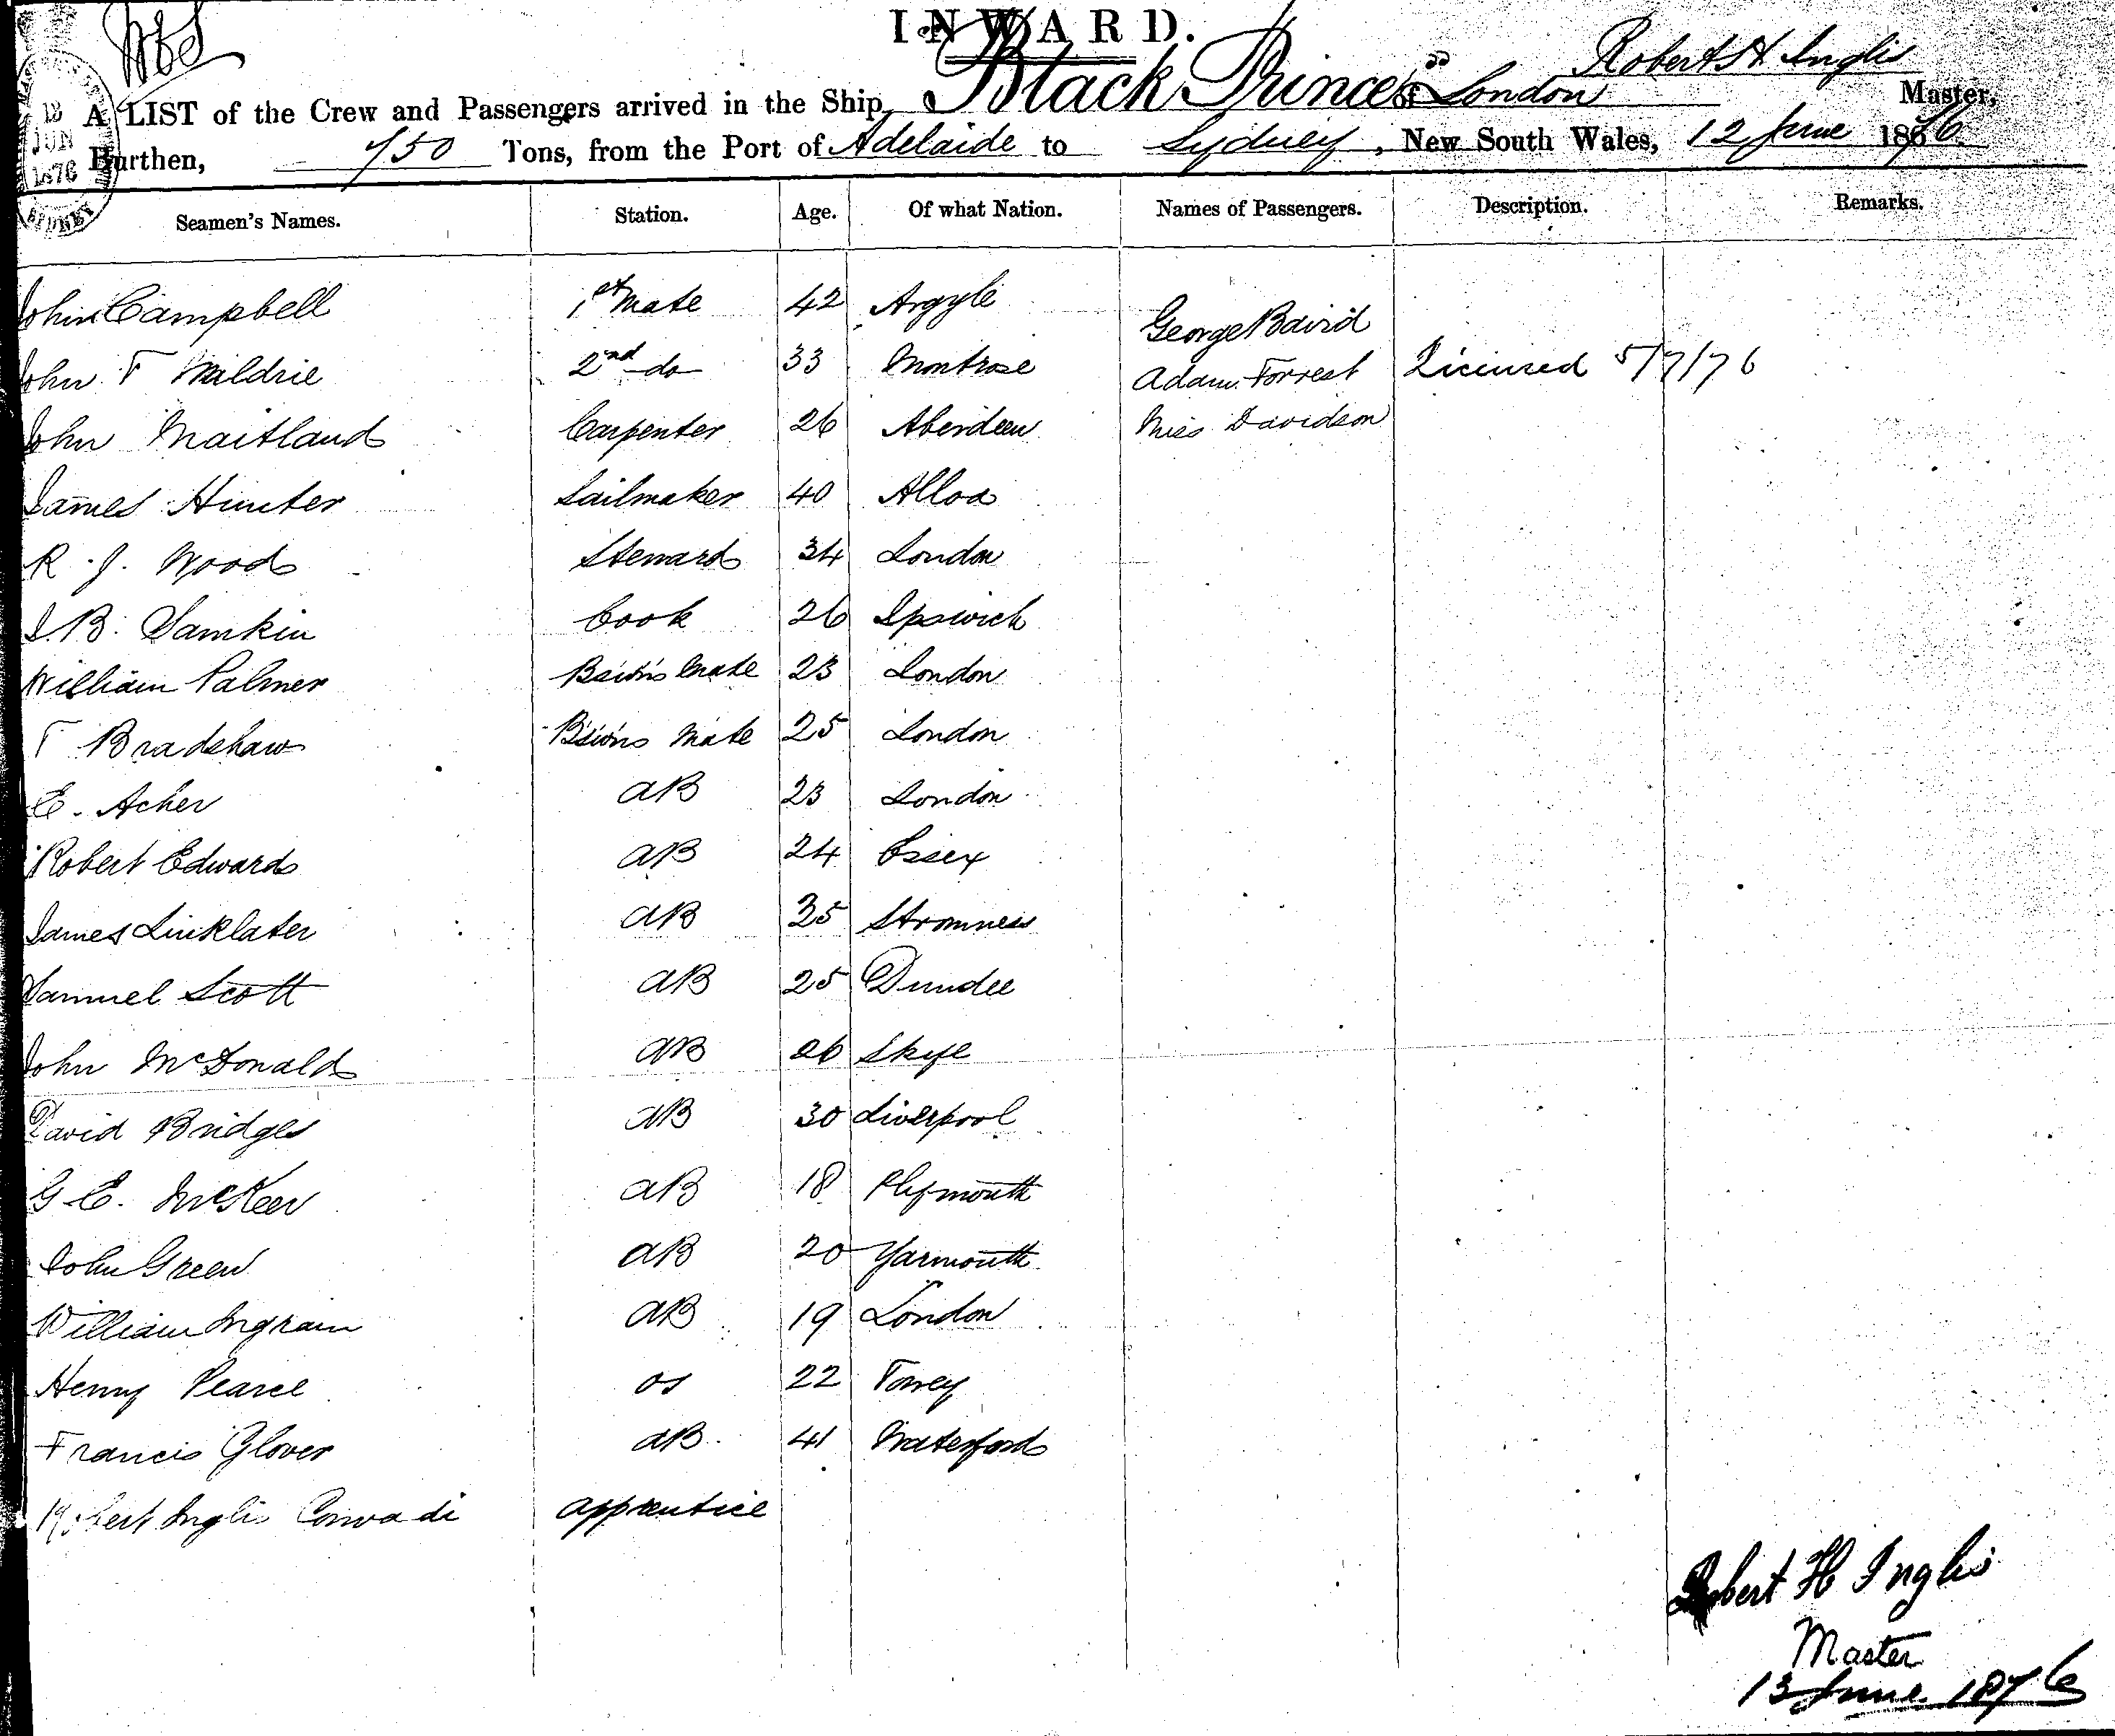 INWARD.
A LIST of the Crew and Passengers arrived in the Ship Black Prince of London Robert H Inglis Master,
Burthen, 750 Tons, from the Port of Adelaide to Sydney, New South Wales, 12 June 1876
Seamen's Names. Station. Age. Of what Nation. Names of Passengers. Description. Remarks.
John Campbell 1st Mate 42 Argyle George Baird
John T 2nd do 33 Montrose Adam Forrest Licensed 5/7/76
John Maitland Carpenter 26 Aberdeen Miss Davidson
James Hunter Sailmaker 40 Alloa
R. J. Wood Steward 34 London
J. B. Samkin Cook 26 Ipswich
William Palmer Bsw'ns Mate 23 London
T Bradshaw Bsw'ns Mate 25 London
E. Acher AB 23 London
Robert Edwards AB 24 Essex
James Linklater AB 35 Stromness
Samuel Scott AB 25 Dundee
John McDonald AB 26 Skye
David Bridges AB 30 Liverpool
G. E. McKeer AB 18 Plymouth
John Green AB 20 Yarmouth
William Ingram AB 19 London
Henry Pearce OS 22 Fowey
Francis Glover AB. 41 Waterford
Robert Inglis Conradi apprentice
Robert H Inglis
Master
13 June 1876
13
JUN
1876
SYDNEY